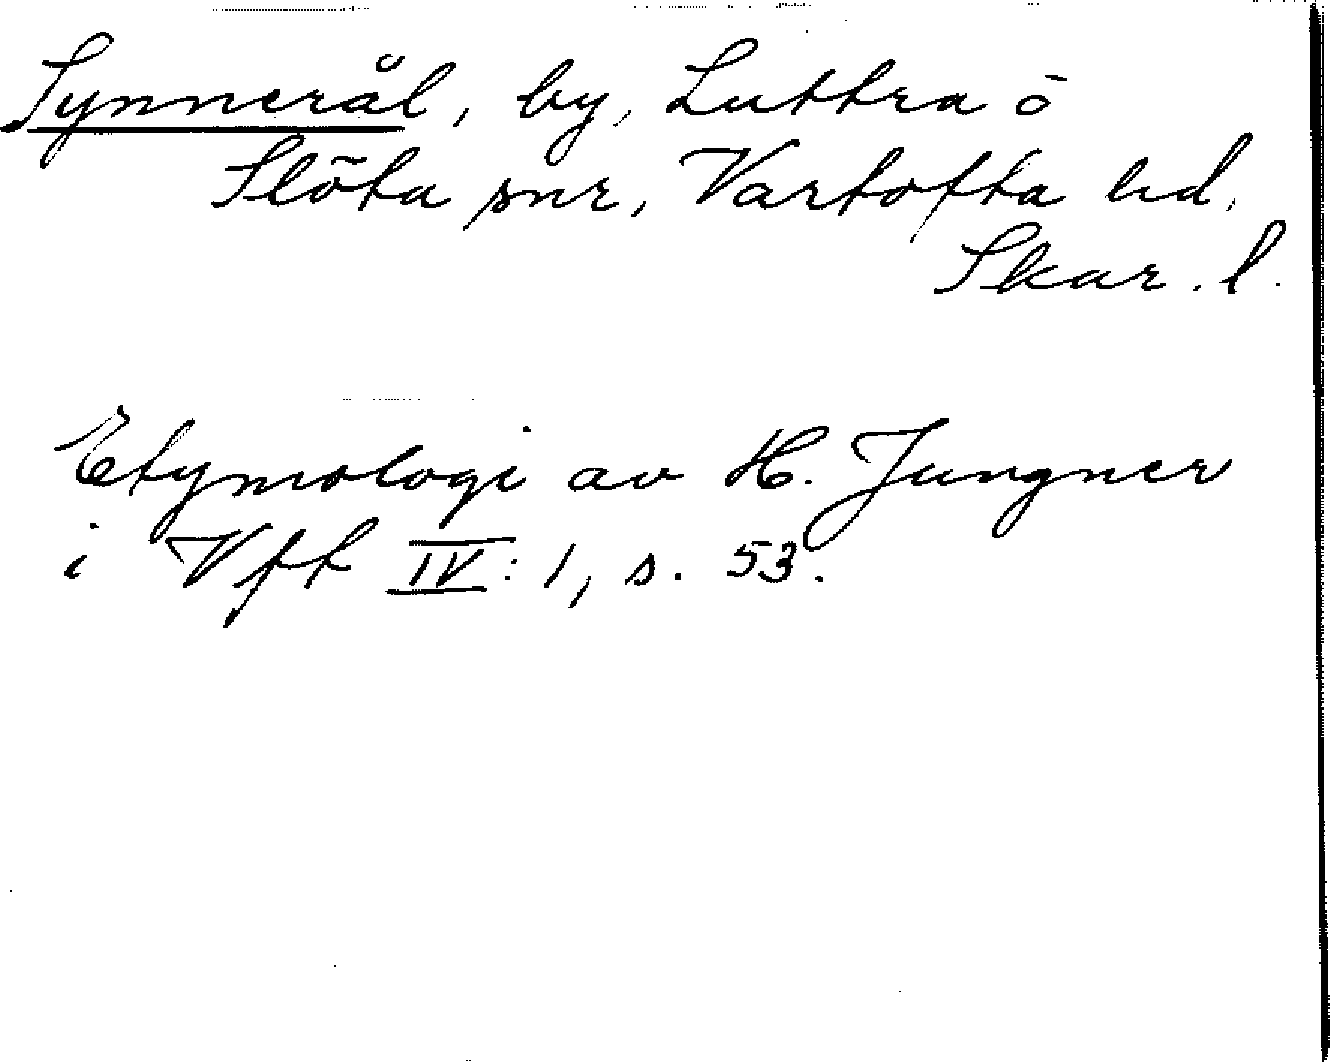 Synnerål, by, Luttra o
Slöta snr, Vartofta hd,
Skar. l.
Etymologi av H. Jungner
i Vft IV: 1, s. 53.